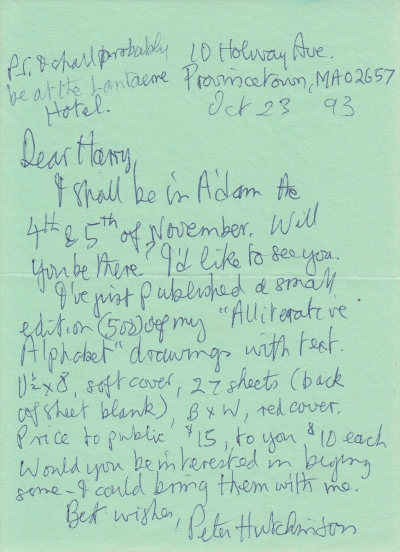 P.S. I shall probably
be at the Lantaerne
Hotel.
10 Holway Ave.
Provincetown, MA 02657
Oct 23 93
Dear Harry,
I shall be in A'dam the
4th & 5th of November. Will
you be there? I'd like to see you.
I've just published a small
edition (500) of my "Alliterative
Alphabet" drawings with text.
x 8, soft cover, 27 sheets (back
of sheet blank), B x W, red cover.
Price to public $15, to you $10 each
Would you be interested in buying
some - I could bring them with me.
Best wishes,
Peter Hutchinson